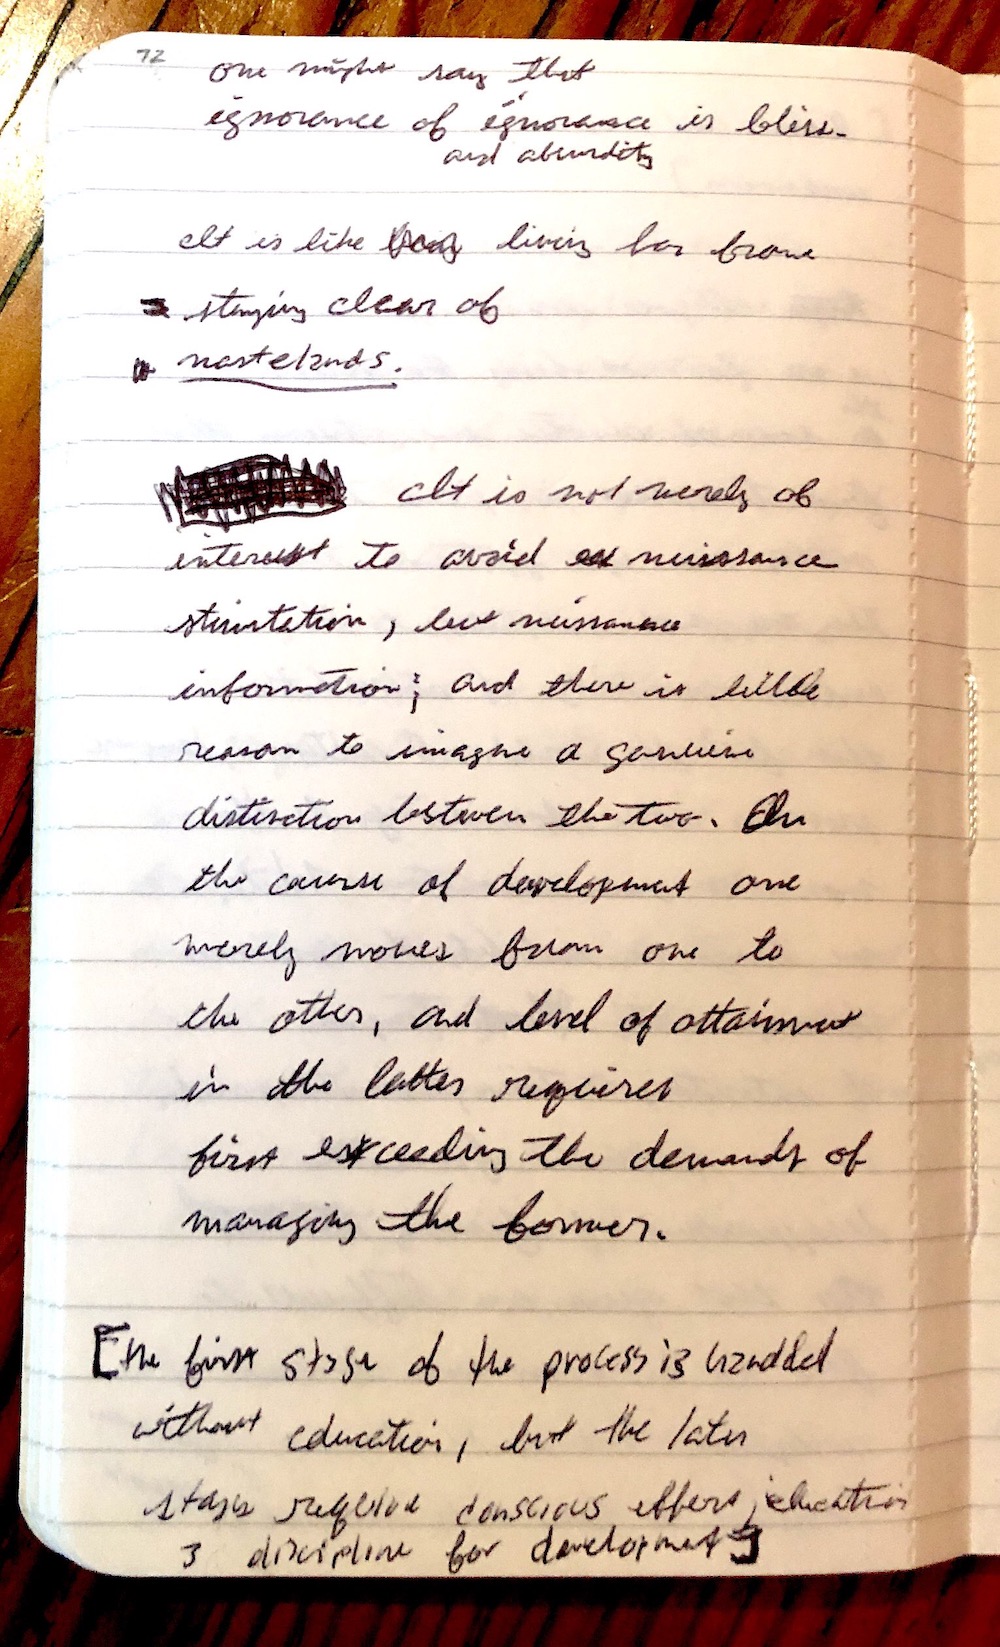 72
one might say that
ignorance of ignorance is bliss.
and absurdity
It is like living far from
staying clear of
wastelands.
It is not merely of
interest to avoid nuissance
stimtation, but nuissance
information; and there is little
reason to imagine a genuine
distinction between the two. In
the course of development one
merely moves from one to
the other, and level of attainment
in the latter requires
first exceeding the demands of
managing the former.
[the first stage of the process is handled
without education, but the later
stages require conscious effort, education
& discipline for development]